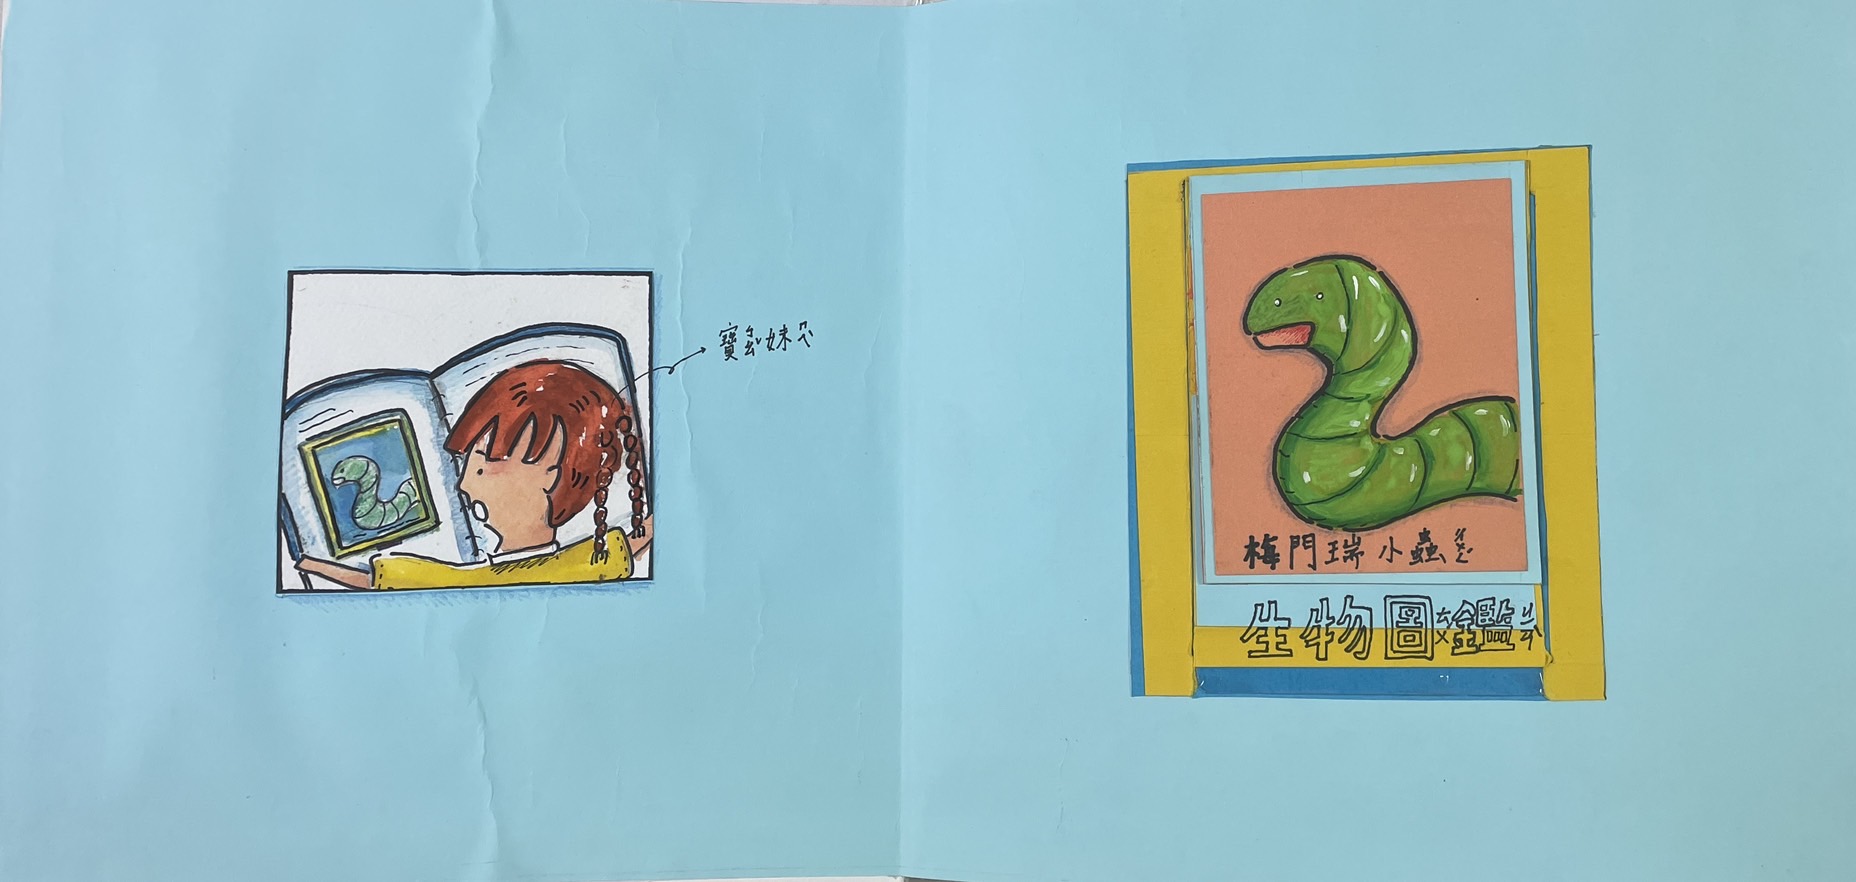 寶ㄅㄠˇ妹ㄇㄟˋ
梅門瑞小蟲ㄔㄨㄥˊ
生物圖ㄊㄨˊ鑑ㄐㄧㄢˋ